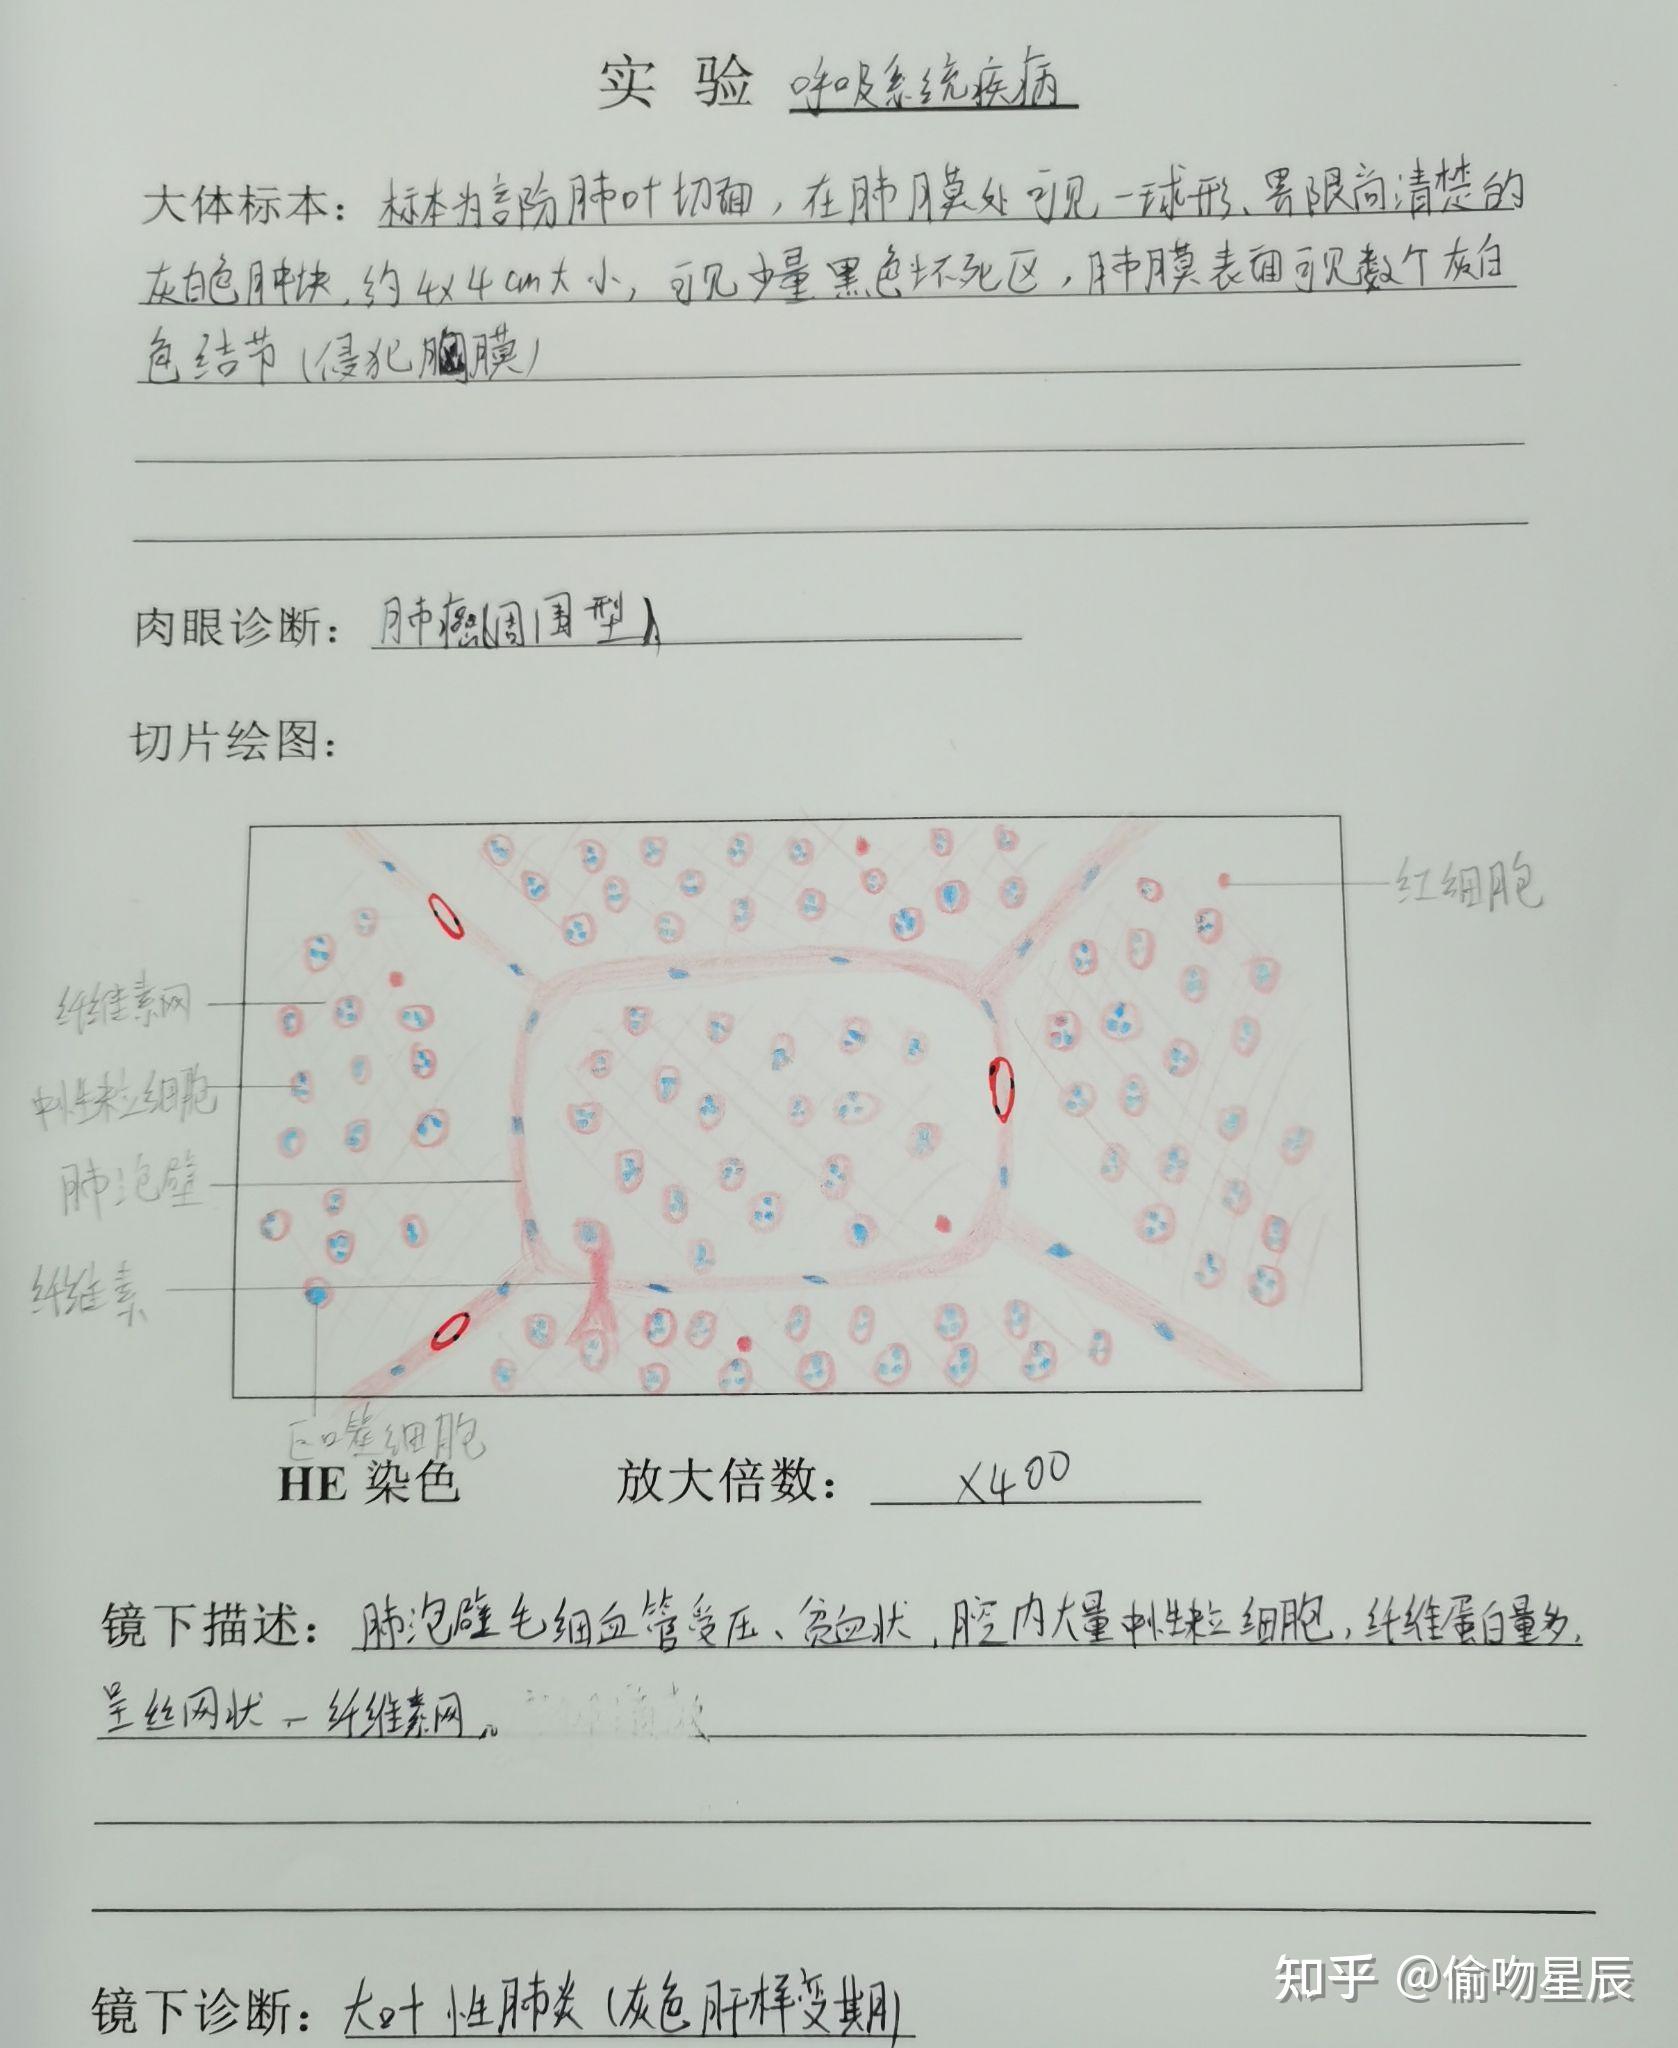 实 验 呼吸系统疾病
大体标本：标本为部份肺叶切面，在肺膜处可见一球形、界限尚清楚的
灰白色肿块，约4x4cm大小，可见少量黑色坏死区，肺膜表面可见数个灰白
色结节（侵犯胸膜）
肉眼诊断：肺癌（周围型）
切片绘图：
红细胞
纤维素网
中性粒细胞
肺泡壁
纤维素
巨噬细胞
HE 染色 放大倍数： X400
镜下描述：肺泡壁毛细血管受压、贫血状，腔内大量中性粒细胞，纤维蛋白量多，
呈丝网状—纤维素网。
镜下诊断：大叶性肺炎（灰色肝样变期）
知乎 @偷吻星辰